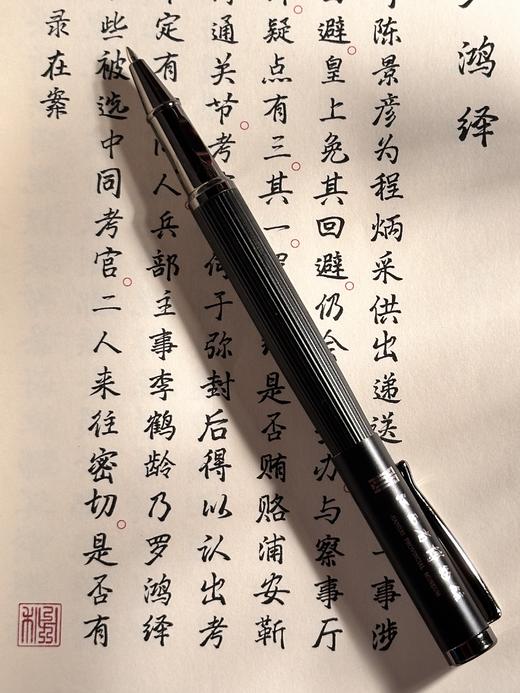 鸿绎
陈景彦为程炳采供出递送一事涉
避。皇上免其回避。仍办。与察事厅
疑点有三。其一。是否贿赂浦安靳
通关节。考何于弥封后得以认出考
定有人兵部主事李鹤龄乃罗鸿绎
些被选中同考官。二人来往密切。是否有
录在案
PROVINCIAL MUSEUM